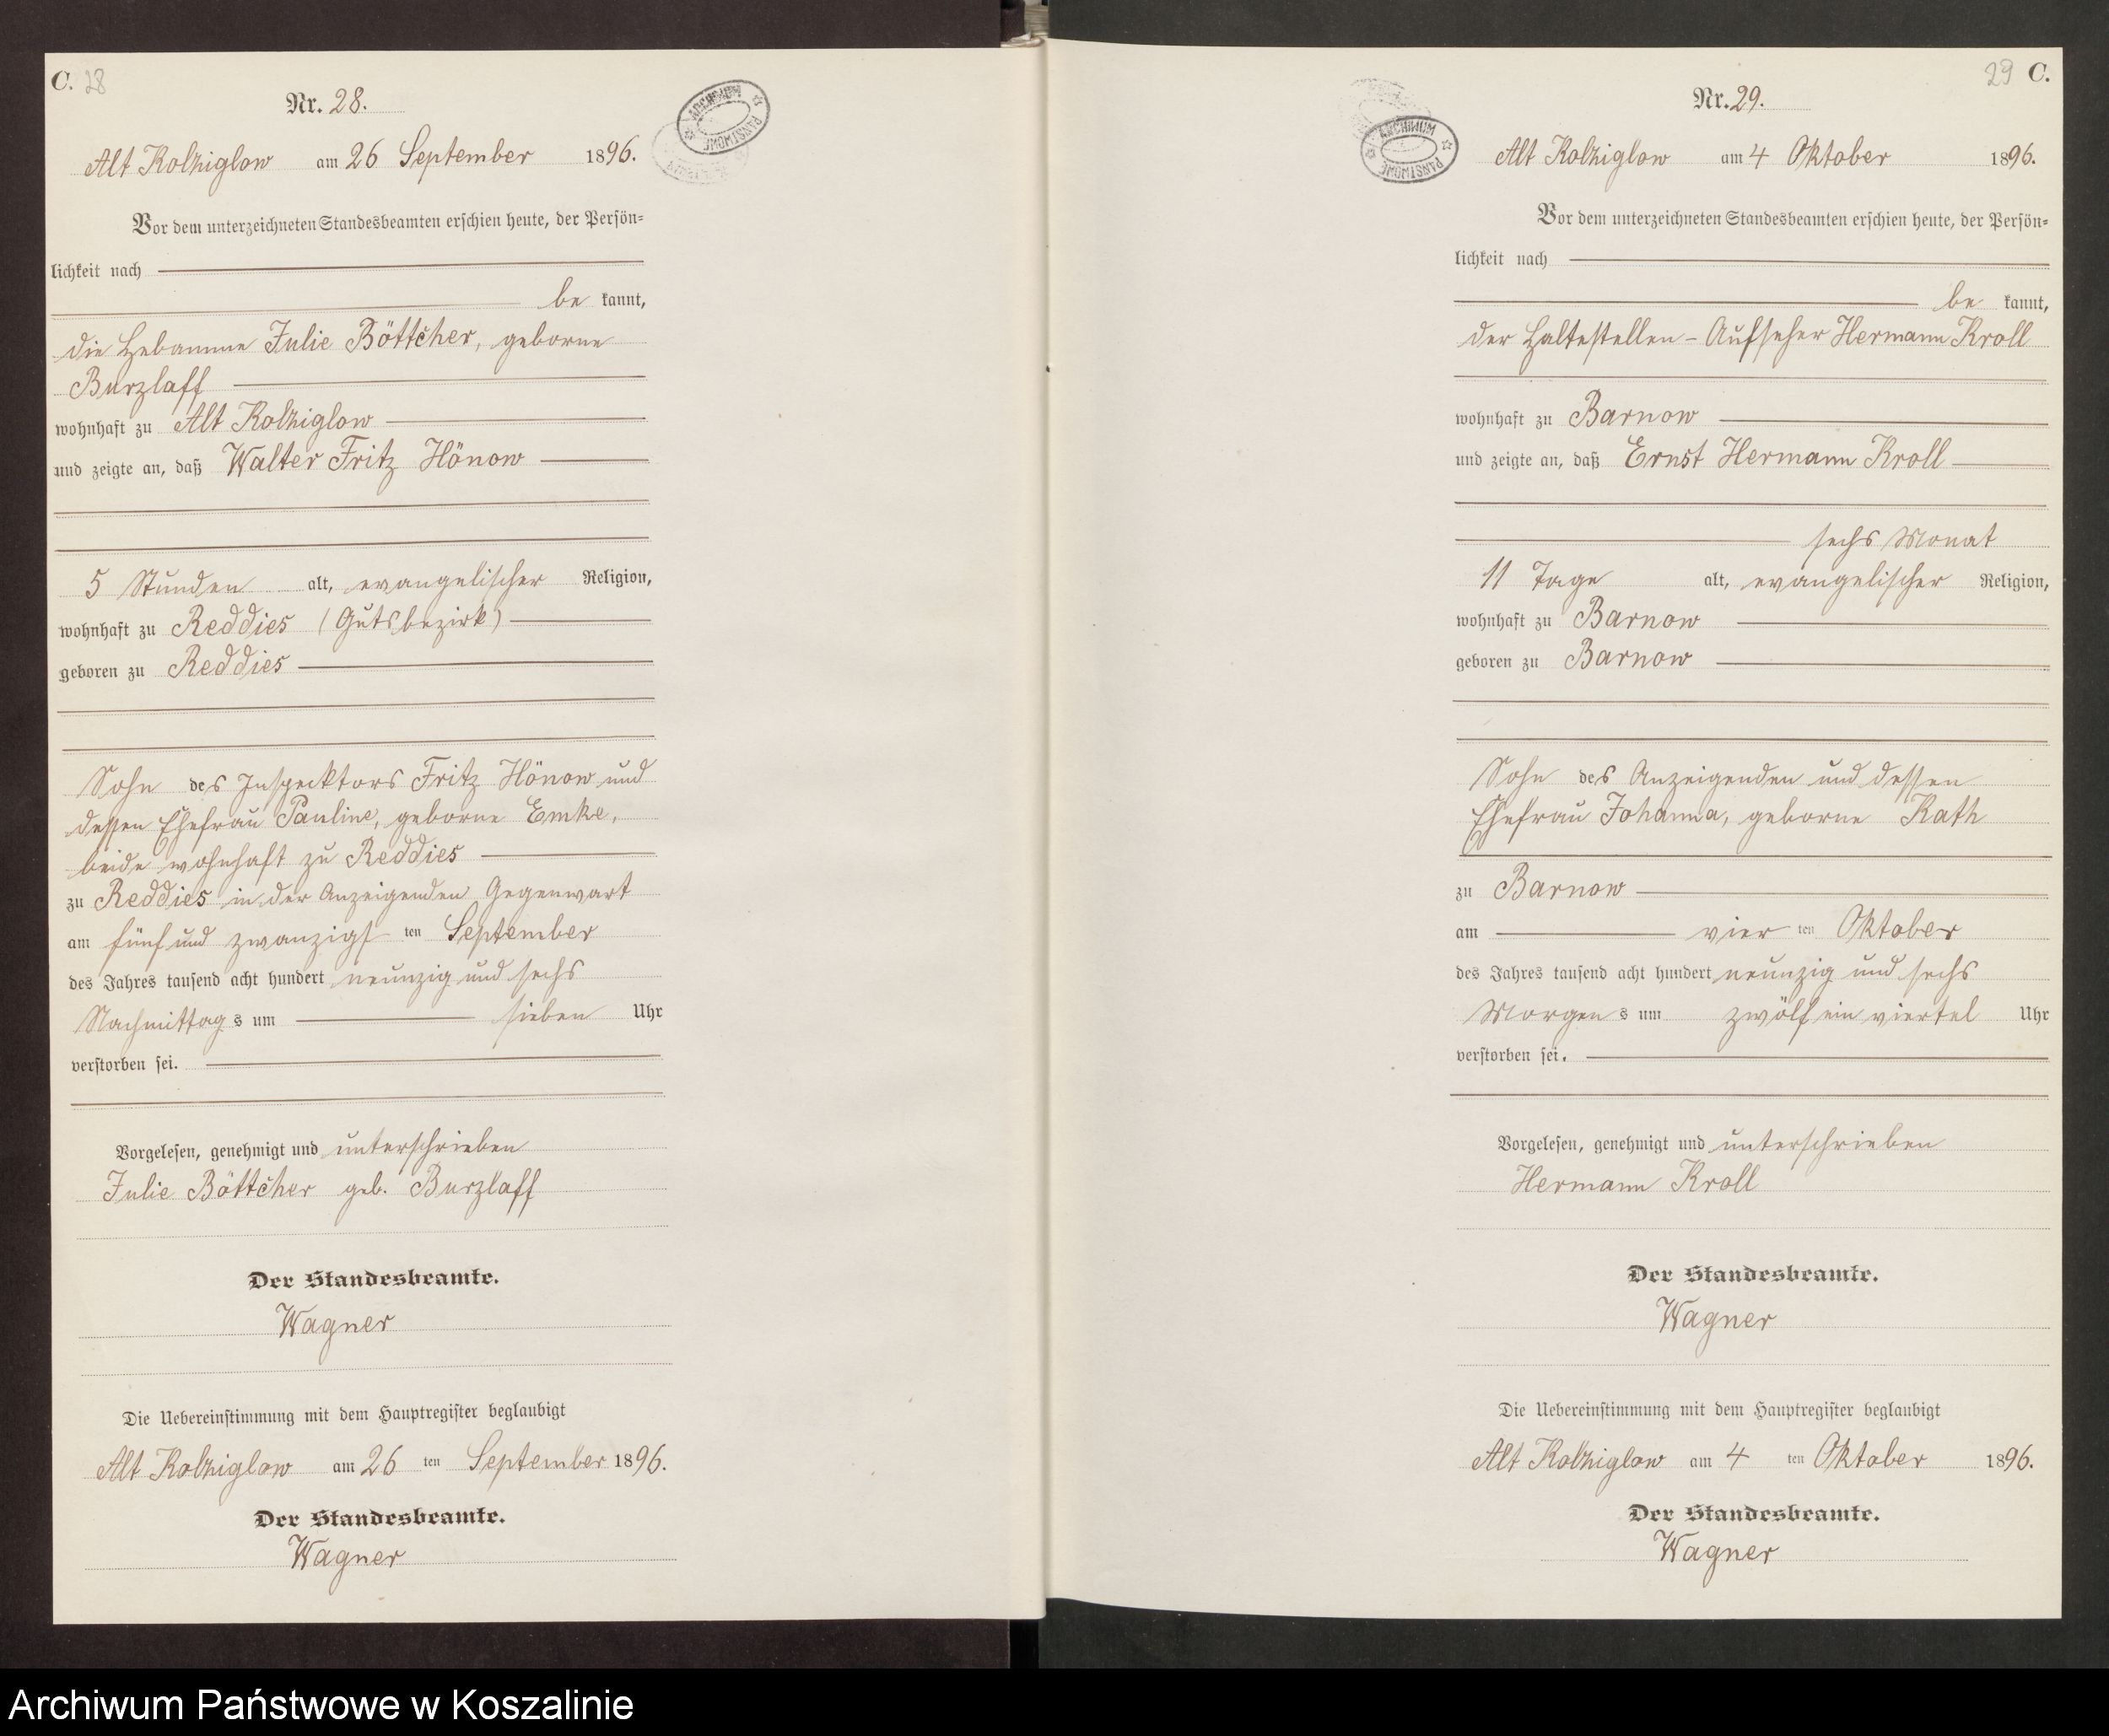 C. 28
Nr. 28.
ARCHIWUM PAŃSTWOWE
Alt Kolziglow am 26 September 1896.
Vor dem unterzeichneten Standesbeamten erschien heute, der Persön-
lichkeit nach
be kannt,
die Hebamme Julie Böttcher, geborne
Burzlaff
wohnhaft zu Alt Kolziglow
und zeigte an, daß Walter Fritz Hönow
5 Stunden alt, evangelischer Religion,
wohnhaft zu Reddies (Gutsbezirk)
geboren zu Reddies
Sohn des Inspecktors Fritz Hönow und
dessen Ehefrau Pauline, geborne Emke,
beide wohnhaft zu Reddies
zu Reddies in der Anzeigenden Gegenwart
am fünf und zwanzigs ten September
des Jahres tausend acht hundert neunzig und sechs
Nachmittag s um sieben Uhr
verstorben sei.
Vorgelesen, genehmigt und unterschrieben
Julie Böttcher geb. Burzlaff
Der Standesbeamte.
Wagner
Die Uebereinstimmung mit dem Hauptregister beglaubigt
Alt Kolziglow am 26 ten September 1896.
Der Standesbeamte.
Wagner
29 C.
Nr. 29.
ARCHIWUM PAŃSTWOWE
Alt Kolziglow am 4 Oktober 1896.
Vor dem unterzeichneten Standesbeamten erschien heute, der Persön-
lichkeit nach
be kannt,
der Haltestellen-Aufseher Hermann Kroll
wohnhaft zu Barnow
und zeigte an, daß Ernst Hermann Kroll
sechs Monat
11 Tage alt, evangelischer Religion,
wohnhaft zu Barnow
geboren zu Barnow
Sohn des Anzeigenden und dessen
Ehefrau Johanna, geborne Rath
zu Barnow
am vier ten Oktober
des Jahres tausend acht hundert neunzig und sechs
Morgen s um zwölf ein viertel Uhr
verstorben sei.
Vorgelesen, genehmigt und unterschrieben
Hermann Kroll
Der Standesbeamte.
Wagner
Die Uebereinstimmung mit dem Hauptregister beglaubigt
Alt Kolziglow am 4 ten Oktober 1896.
Der Standesbeamte.
Wagner
Archiwum Państwowe w Koszalinie